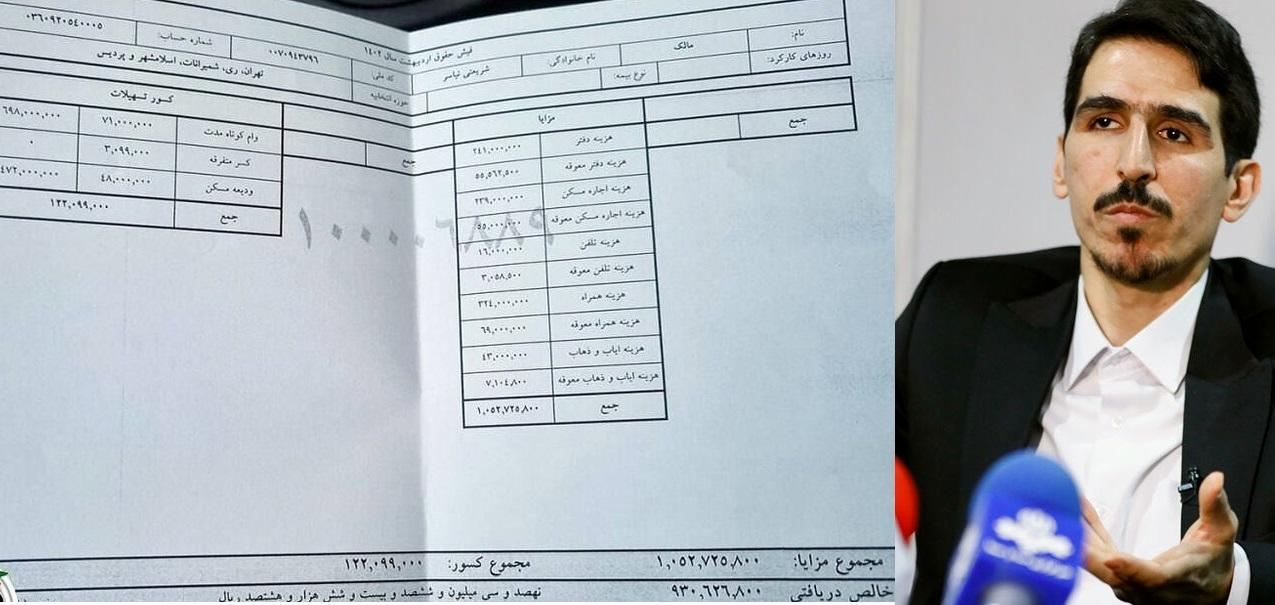 فیش حقوق اردیبهشت سال ۱۴۰۲
نام: مالک نام خانوادگی: شریعتی نیاسر کد ملی: ۰۰۷۰۹۴۳۷۹۶ شماره حساب: ۰۳۶۰۹۲۰۵۴۰۰۰۵
روزهای کارکرد: نوع بیمه: حوزه انتخابیه تهران، ری، شمیرانات، اسلامشهر و پردیس
جمع
جمع
مزایا
هزینه دفتر ۲۴۱,۰۰۰,۰۰۰
هزینه دفتر معوقه ۵۵,۵۶۲,۵۰۰
هزینه اجاره مسکن ۲۳۹,۰۰۰,۰۰۰
هزینه اجاره مسکن معوقه ۵۵,۰۰۰,۰۰۰
هزینه تلفن ۱۶,۰۰۰,۰۰۰
هزینه تلفن معوقه ۳,۰۵۸,۵۰۰
هزینه همراه ۳۲۴,۰۰۰,۰۰۰
هزینه همراه معوقه ۶۹,۰۰۰,۰۰۰
هزینه ایاب و ذهاب ۴۳,۰۰۰,۰۰۰
هزینه ایاب و ذهاب معوقه ۷,۱۰۴,۸۰۰
جمع ۱,۰۵۲,۷۲۵,۸۰۰
کسور تسهیلات
وام کوتاه مدت ۷۱,۰۰۰,۰۰۰ ۶۹۸,۰۰۰,۰۰۰
کسر متفرقه ۳,۰۹۹,۰۰۰ ۰
ودیعه مسکن ۴۸,۰۰۰,۰۰۰ ۴۷۲,۰۰۰,۰۰۰
جمع ۱۲۲,۰۹۹,۰۰۰
مجموع مزایا: ۱,۰۵۲,۷۲۵,۸۰۰ مجموع کسور: ۱۲۲,۰۹۹,۰۰۰
خالص دریافتی ۹۳۰,۶۲۶,۸۰۰ نهصد و سی میلیون و ششصد و بیست و شش هزار و هشتصد ریال